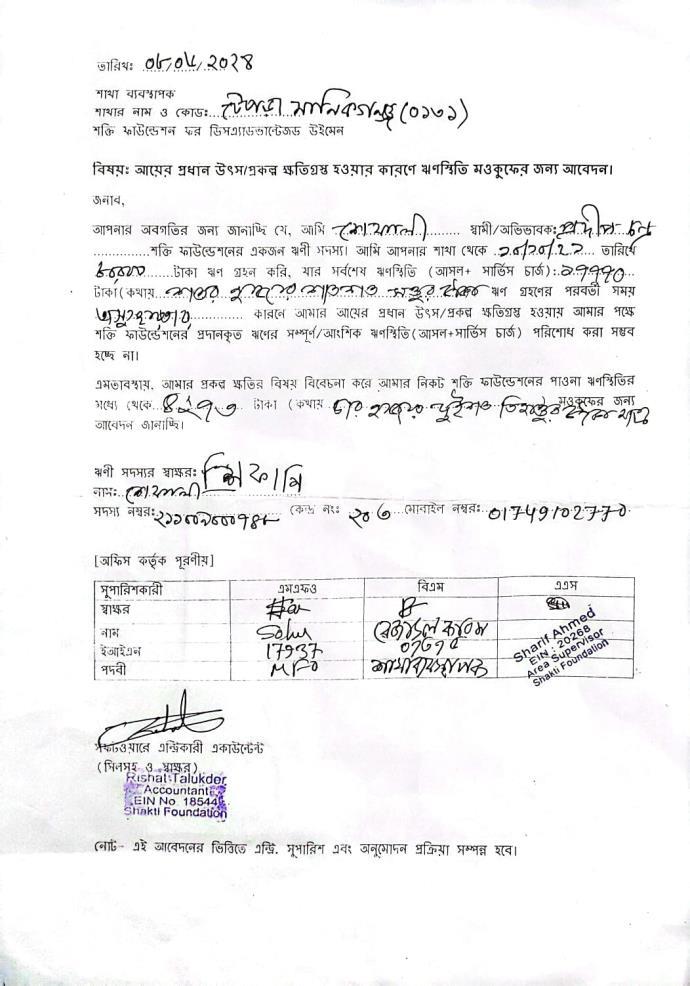 তারিখঃ ০৮/০৮/২০২৪
শাখা ব্যবস্থাপক
শাখার নাম ও কোডঃ টেপড়া মানিকগঞ্জ (০১৩১)
শক্তি ফাউন্ডেশন ফর ডিসএ্যাডভান্টেজড উইমেন
বিষয়ঃ আয়ের প্রধান উৎস/প্রকল্প ক্ষতিগ্রস্থ হওয়ার কারণে ঋণস্থিতি মওকুফের জন্য আবেদন।
জনাব,
আপনার অবগতির জন্য জানাচ্ছি যে, আমি শেফালী স্বামী/অভিভাবক: প্রদীপ চন্দ্র
শক্তি ফাউন্ডেশনের একজন ঋণী সদস্য। আমি আপনার শাখা থেকে তারিখে
টাকা ঋণ গ্রহন করি, যার সর্বশেষ ঋণস্থিতি (আসল+ সার্ভিস চার্জ):
টাকা (কথায় সতের হাজার সাতশত সত্তুর টাকা ঋণ গ্রহণের পরবর্তী সময়
অসুস্থতার কারনে আমার আয়ের প্রধান উৎস/প্রকল্প ক্ষতিগ্রস্থ হওয়ায় আমার পক্ষে
শক্তি ফাউন্ডেশনের প্রদানকৃত ঋণের সম্পূর্ণ/আংশিক ঋণস্থিতি(আসল+সার্ভিস চার্জ) পরিশোধ করা সম্ভব
হচ্ছে না।
এমতাবস্থায়, আমার প্রকল্প ক্ষতির বিষয় বিবেচনা করে আমার নিকট শক্তি ফাউন্ডেশনের পাওনা ঋণস্থিতির
মধ্যে থেকে ৪২৭৩ টাকা (কথায় চার হাজার দুইশত তিহাত্তুর টাকা মাত্র মওকুফের জন্য
আবেদন জানাচ্ছি।
ঋণী সদস্যর স্বাক্ষরঃ
নামঃ শেফালী
সদস্য নম্বরঃ কেন্দ্র নংঃ ২০৩ মোবাইল নম্বরঃ 01749102770
[অফিস কর্তৃক পূরণীয়]
সুপারিশকারী এমএফও বিএম এএস
স্বাক্ষর
নাম রেজাউল করিম
ইআইএন 17937
পদবী MFO শাখাব্যবস্থাপক
Sharif Ahmed
EIN : 20268
Area Supervisor
Shakti Foundation
সফটওয়ারে এন্ট্রিকারী একাউন্টেন্ট
(সিলসহ ও স্বাক্ষর)
Rishat Talukder
Accountant
EIN No 18544
Shakti Foundation
নোট- এই আবেদনের ভিত্তিতে এন্ট্রি, সুপারিশ এবং অনুমোদন প্রক্রিয়া সম্পন্ন হবে।